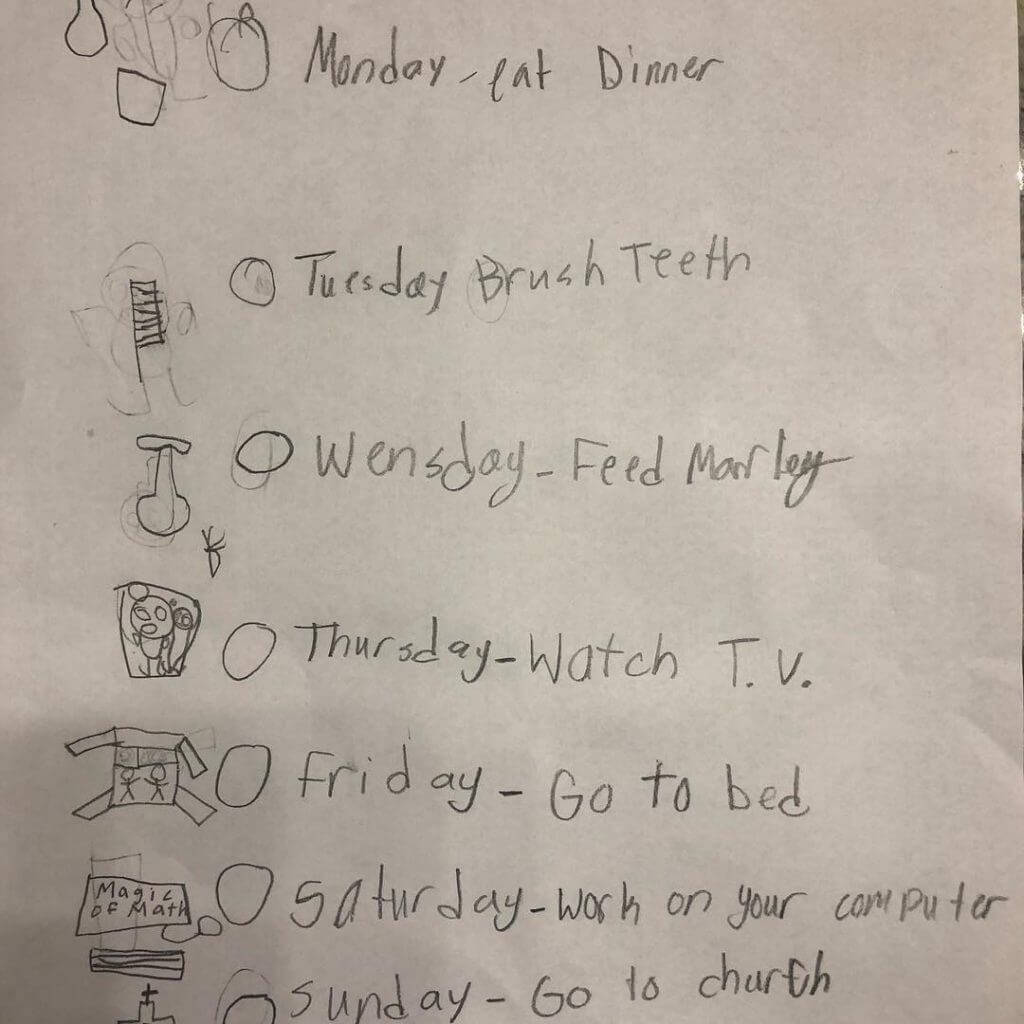 Monday - eat Dinner
Tuesday Brush Teeth
Wensday - Feed Marley
Thursday - Watch T.V.
Friday - Go to bed
Magic
of Math
Saturday - work on your computer
Sunday - Go to church